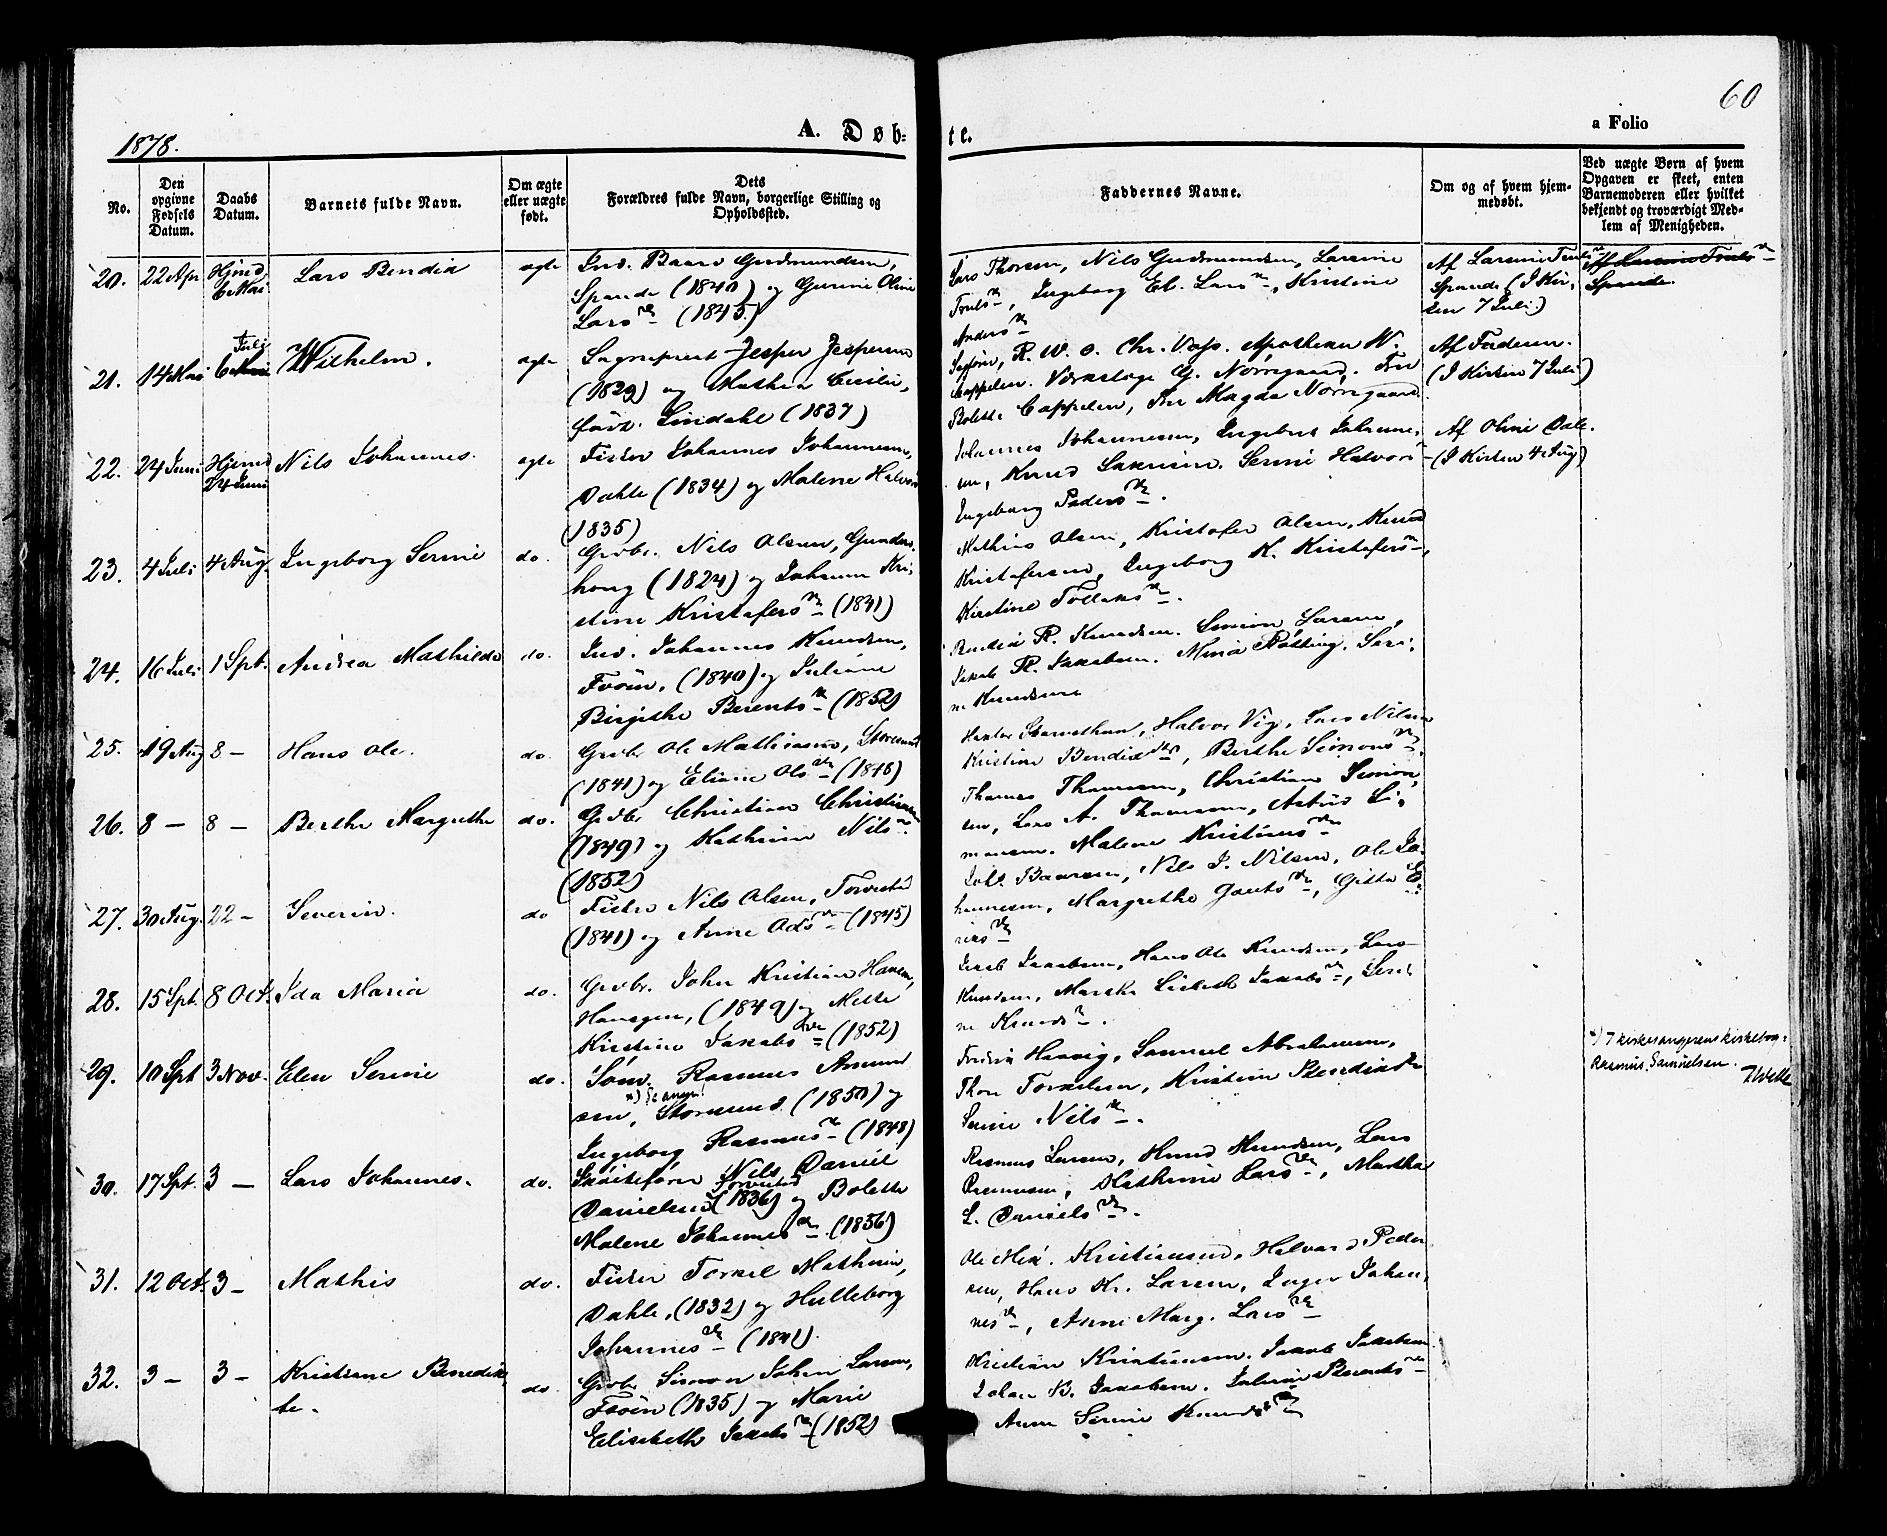 60
1878.
A. Døb-
te.
a Folio
No.
Den opgivne Fødsels Datum.
Daabs Datum.
Barnets fulde Navn.
Om ægte eller uægte født.
Dets Forældres fulde Navn, borgerlige Stilling og Opholdssted.
Faddernes Navne.
Om og af hvem hjemmedøbt.
Ved uægte Børn af hvem Opgaven er skeet, enten Barnemoderen eller hvilket bekjendt og troværdigt Medlem af Menigheden.
20. 22 Apr Hjemd. 6 Mai Lars Bendix ægte
Ind. Baard Gudmundsen,
Spande (1840) og Gurine Oline
Larsdtr (1845)
Lars Thorsen, Nils Gudmundsen, Larsine
Truls dtr, Ingeborg El. Lars dtr, Kristine
Anders dtr
Af Larsine Truls dtr
Spande (I Kirken 7 Juli)
21. 14 Mai 6 Juli Wilhelm. ægte
Sagfører Jesper Jespersen
(1829) og Mathea Cecilie,
født Lindahl (1837)
Sagfører R. W. o. Chr. Vaps. Apotheker N.
Cappelen. Værkslæge G. Nørregaard. Fru
Bolette Cappelen, Fru Magda Nørregaard.
Af Faderen.
(I Kirken 7 Juli)
22. 24 Juni Hjemd 24 Juni Nils Johannes. ægte
Fisker Johannes Johannesen,
Dahle (1834) og Malene Halvors
(1835)
Johannes Johannesen, Ingebret Johannes-
sen, Knud Sakrisen. Serine Halvors
Ingeborg Peders dtr.
Af Oline Dale.
(I Kirken 4 Aug)
23. 4 Juli 4 Aug. Ingeborg Serine do.
Grdbr. Nils Olsen, Gunders-
houg (1824) og Johanne Kri-
stine Kristofers dtr (1841)
Mathias Olsen, Kristofer Olsen, Knud
Kristofersen, Ingeborg K. Kristofers dtr,
Kirstine Tollaks dtr.
24. 16 Juli 1 Spt. Andrea Mathilde do.
Ind. Johannes Knudsen,
Fvöin, (1840) og Juliane
Birgithe Berents dtr (1852)
Bendix R. Knudsen. Simon Larsen,
Jakob R. Jakobsen. Mina Røtting. Seri-
ne Knudsen
25. 19 Aug 8 — Hans Ole. do.
Grdbr Ole Mathiasen, Storesund
(1841) og Eline Ols dtr (1848)
Halvor Vig, Lars Nilsen
Kristine Bendix dtr, Berthe Simons dtr.
26. 8 — 8 — Berthe Margrethe do.
Grdbr Christian Christiansen
(1849) og Kathrine Nils dtr.
(1852)
Thomas Thomsen, Christian Simon-
sen, Lars A. Thomsen, Astrid Si-
monsen. Malene Kristians dtr
27. 30 Aug. 22 — Severin. do
Fisker Nils Olsen, Torvestad
(1841) og Anne Ads dtr (1845)
Johs. Baarsen, Nils J. Nilsen, Ole Jo-
hannesen, Margrethe Gauts dtr, Gitta E-
riks dtr
28. 15 Spt. 8 Oct. Ida Maria do.
Grdbr. John Kristian Hansen,
Haugen, (1849) og Mette
Kirstine Jakobs dtr (1852)
Jakob Jakobsen, Hans Ole Knudsen, Lars
Knudsen, Marthe Lisbeth Jakobs dtr, Seri-
ne Knuds dtr.
29. 10 Spt 3 Nov. Elen Serine do.
Søm. Rasmus Amund
sen, Storesund (1850) og
Ingeborg Rasmus dtr (1848)
Fredrik Hervig, Samuel Abrahamsen,
Thore Torkelsen, Kristine Bendix dtr
Serine Nils dtr.
x) I kirkesangerens kirkebog:
Rasmus Samuelsen.
30. 17 Spt. 3 — Lars Johannes. do.
Nils Daniel
Danielsen Torvestad (1836) og Bolette
Malene Johannes dtr (1856)
Rasmus Larsen, Knud Knudsen, Lars
Rasmusen, Kathrine Lars dtr, Martha
L. Daniels dtr.
31. 12 Oct. 3 — Mathis do.
Fisker Torkel Mathisen,
Dahle, (1832) og Hulleborg
Johannes dtr (1841).
Ole Kristiansen, Halvard Peder
sen, Hans Kr. Larsen, Inger Johan-
nes dtr, Anne Marg. Lars dtr
32. 3 — 3 — Kristiane Benedik-
te. do
Grdbr Simon Johan Larsen,
Fvöin (1835) og Marie
Elisebeth Jakobs dtr (1852)
Kristian Kristiansen. Jakob Jakobsen
Johan B. Jakobsen. Juliane Berents dtr
Anne Serine Knuds dtr